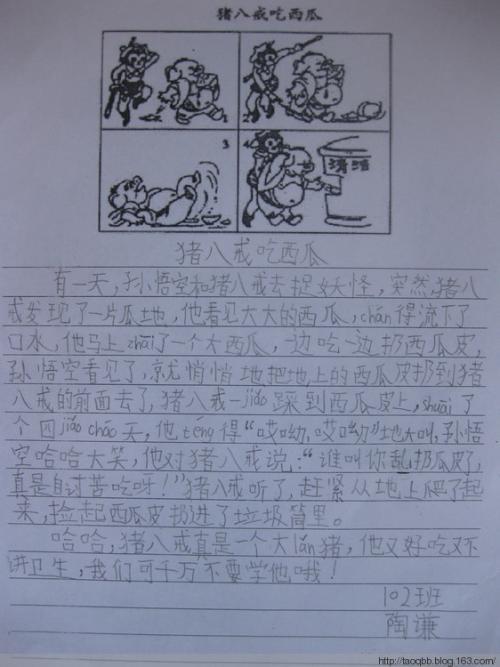 猪八戒吃西瓜
1
2
3
4
清洁
猪八戒吃西瓜
有一天,孙悟空和猪八戒去捉妖怪,突然猪八
戒发现了一片瓜地,他看见大大的西瓜,chán得流下了
口水,他马上zhāi了一个大西瓜,边吃边扔西瓜皮,
孙悟空看见了,就悄悄地把地上的西瓜皮扔到猪
八戒的前面去了,猪八戒一jiǎo踩到西瓜皮上,shuāi了
个四jiǎo cháo天,他téng得“哎呦,哎呦”地大叫,孙悟
空哈哈大笑,他对猪八戒说:“谁叫你乱扔瓜皮,
真是自讨苦吃呀!”猪八戒听了,赶紧从地上爬了起
来,捡起西瓜皮扔进了垃圾筒里。
哈哈,猪八戒真是一个大lǎn猪,他又好吃又不
讲卫生,我们可千万不要学他哦!
102班
陶谦
http://taoqbb.blog.163.com/